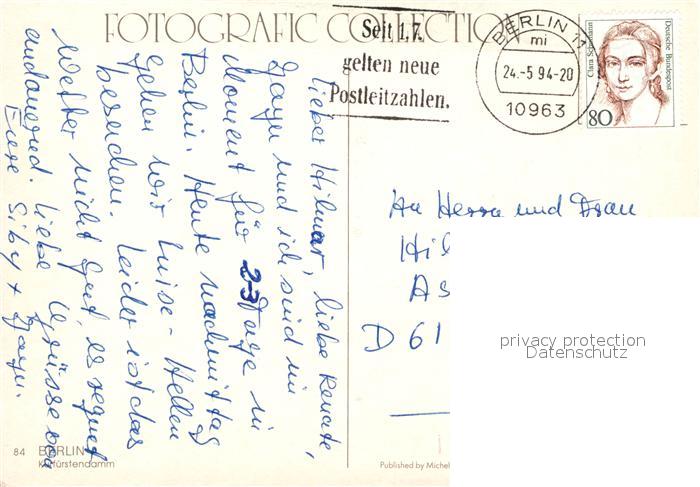 FOTOGRAFIC COLLECTION
Seit 1.7.
gelten neue
Postleitzahlen.
BERLIN 11
mi
24.-5 94-20
10963
Deutsche Bundespost
Clara Schumann
80
Lieber Hilmar, liebe Renate,
und ich sind im
Moment für 2-3 Tage in
Berlin. Heute nachmittag
gehen wir Luise-Hellen
besuchen. Leider ist das
Wetter nicht gut, es regnet
andauernd. Liebe Grüsse von
Eure
An Herrn und Frau
Hil
As
D 61
privacy protection
Datenschutz
84 BERLIN
Kurfürstendamm
Published by Michel